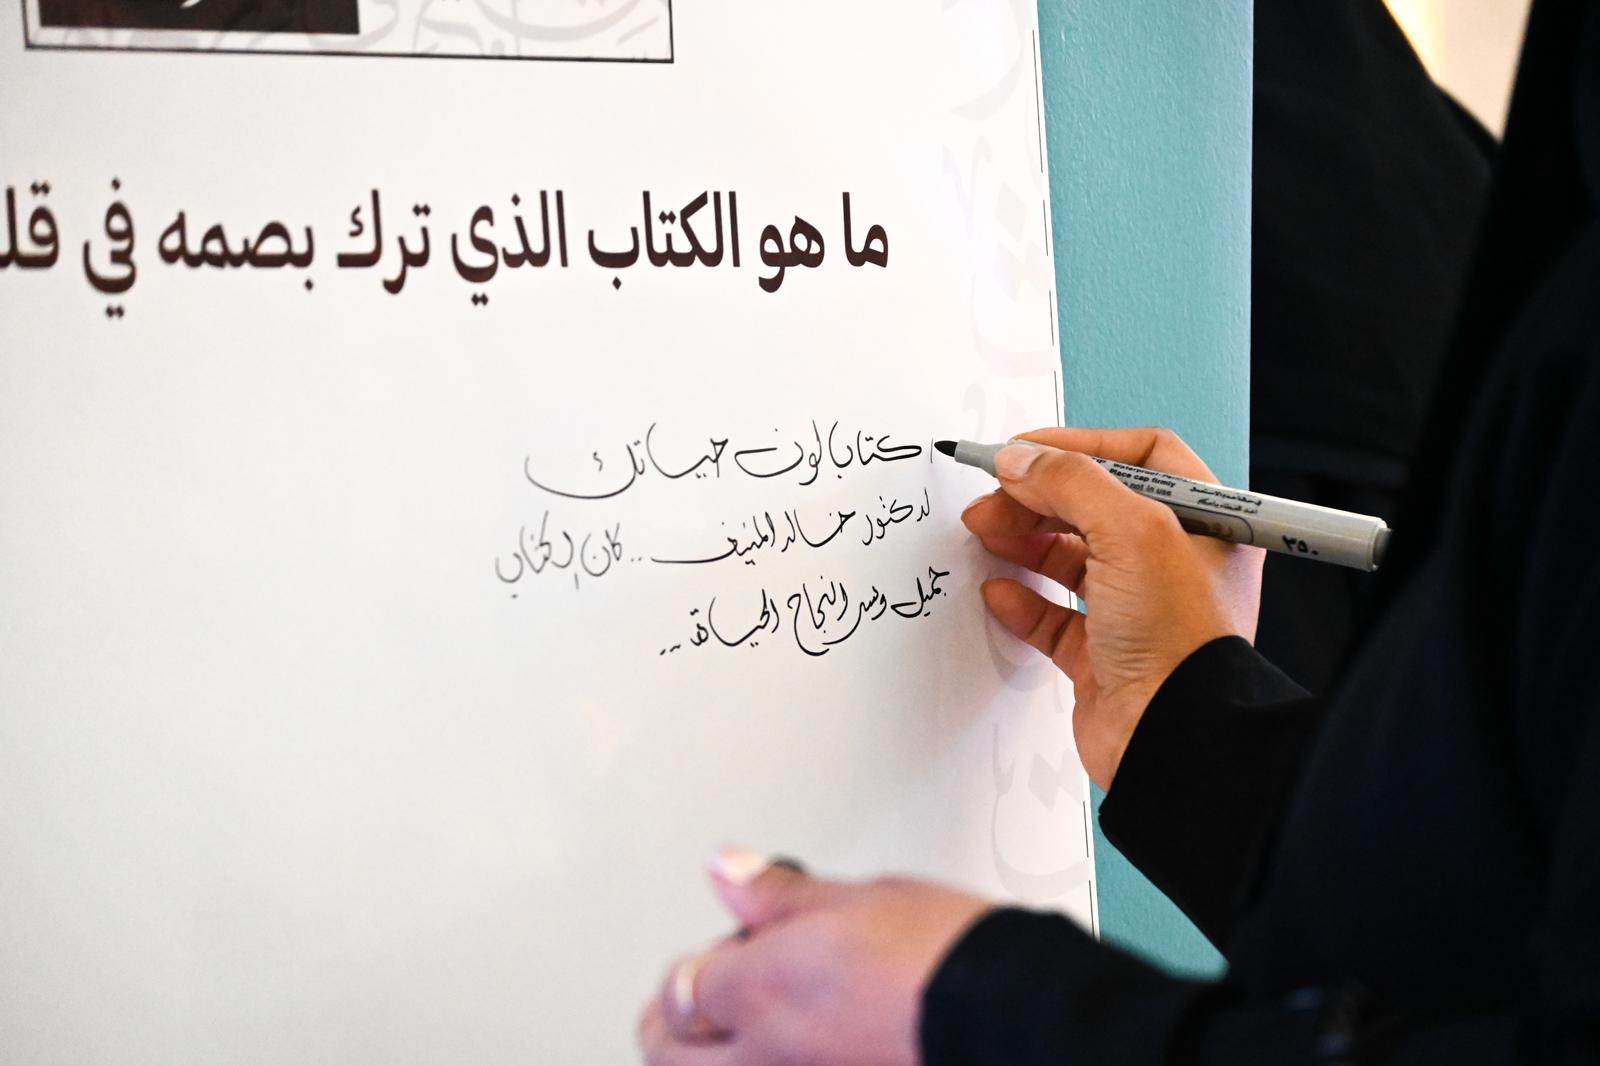 ما هو الكتاب الذي ترك بصمه في قلـ
كتاب لون حياتك
لدكتور خالد المنيف .. كان الكتاب
جميل وسر النجاح الحياة ...
Waterproof
Place cap firmly
not in use
٣٥٠